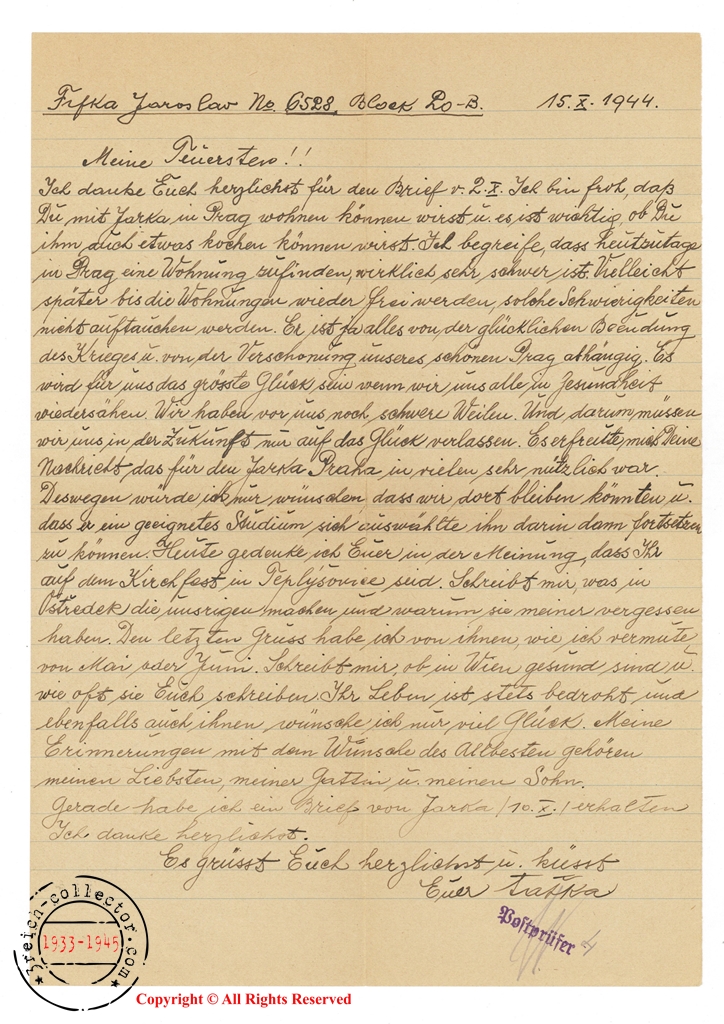 Fifka Jaroslav No. 6528 Block 20-B. 15.X.1944.
Meine Teuersten!!
Ich danke Euch herzlichst für den Brief v. 2.X. Ich bin froh, daß
Du mit Jarka in Prag wohnen können wirst u. es ist wichtig, ob Du
ihm auch etwas kochen können wirst. Ich begreife, dass heutzutage
in Prag eine Wohnung zufinden, wirklich sehr schwer ist. Vielleicht
später bis die Wohnungen wieder frei werden, solche Schwierigkeiten
nicht auftauchen werden. Es ist ja alles von der glücklichen Beendung
des Krieges u. von der Verschonung unseres schönen Prag abhängig. Es
wird für uns das grösste Glück sein wenn wir uns alle in Gesundheit
wiedersähen. Wir haben vor uns noch schwere Weilen. Und darum müssen
wir uns in der Zukunft nur auf das Glück verlassen. Es erfreute mich Deine
Nachricht, das für den Jarka Praha in vielen sehr nützlich war.
Deswegen würde ich nur wünschen dass wir dort bleiben könnten u.
dass er ein geeignetes Studium sich auswählte ihn darin dann fortsetzen
zu können. Heute gedenke ich Euer in der Meinung, dass Ihr
auf dem Kirchfest in Teplýšovice seid. Schreibt mir, was in
Ostředek die unsrigen machen und warum sie meiner vergessen
haben. Den letzten Gruss habe ich von ihnen, wie ich vermute
von Mai oder Juni. Schreibt mir, ob in Wien gesund sind u.
wie oft sie Euch schreiben. Ihr Leben ist stets bedroht und
ebenfalls auch ihnen wünsche ich nur viel Glück. Meine
Erinnerungen mit dem Wunsche des Allbesten gehören
meinen Liebsten, meiner Gattin u. meinen Sohn.
Gerade habe ich ein Brief von Jarka /10.X./ erhalten
Ich danke herzlichst.
Es grüsst Euch herzlichst u. küsst
Euer Taťka
Postprüfer 4
3reich-collector.com
1933-1945
Copyright © All Rights Reserved